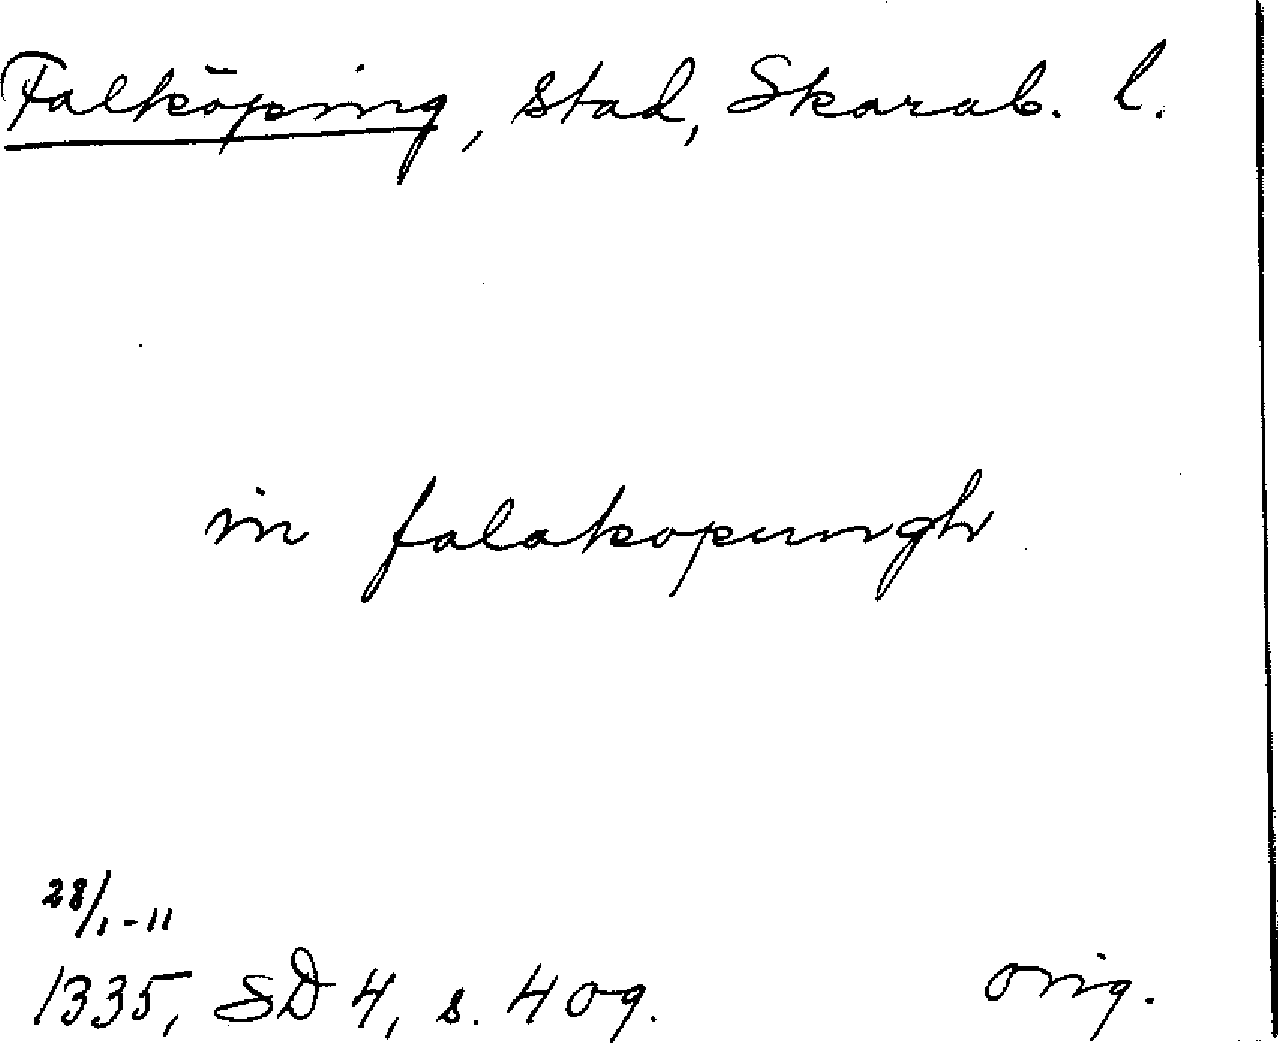 Falköping, stad, Skarab. l.
in falakopungh
28/1-11
1335, SD 4, s. 409. orig.